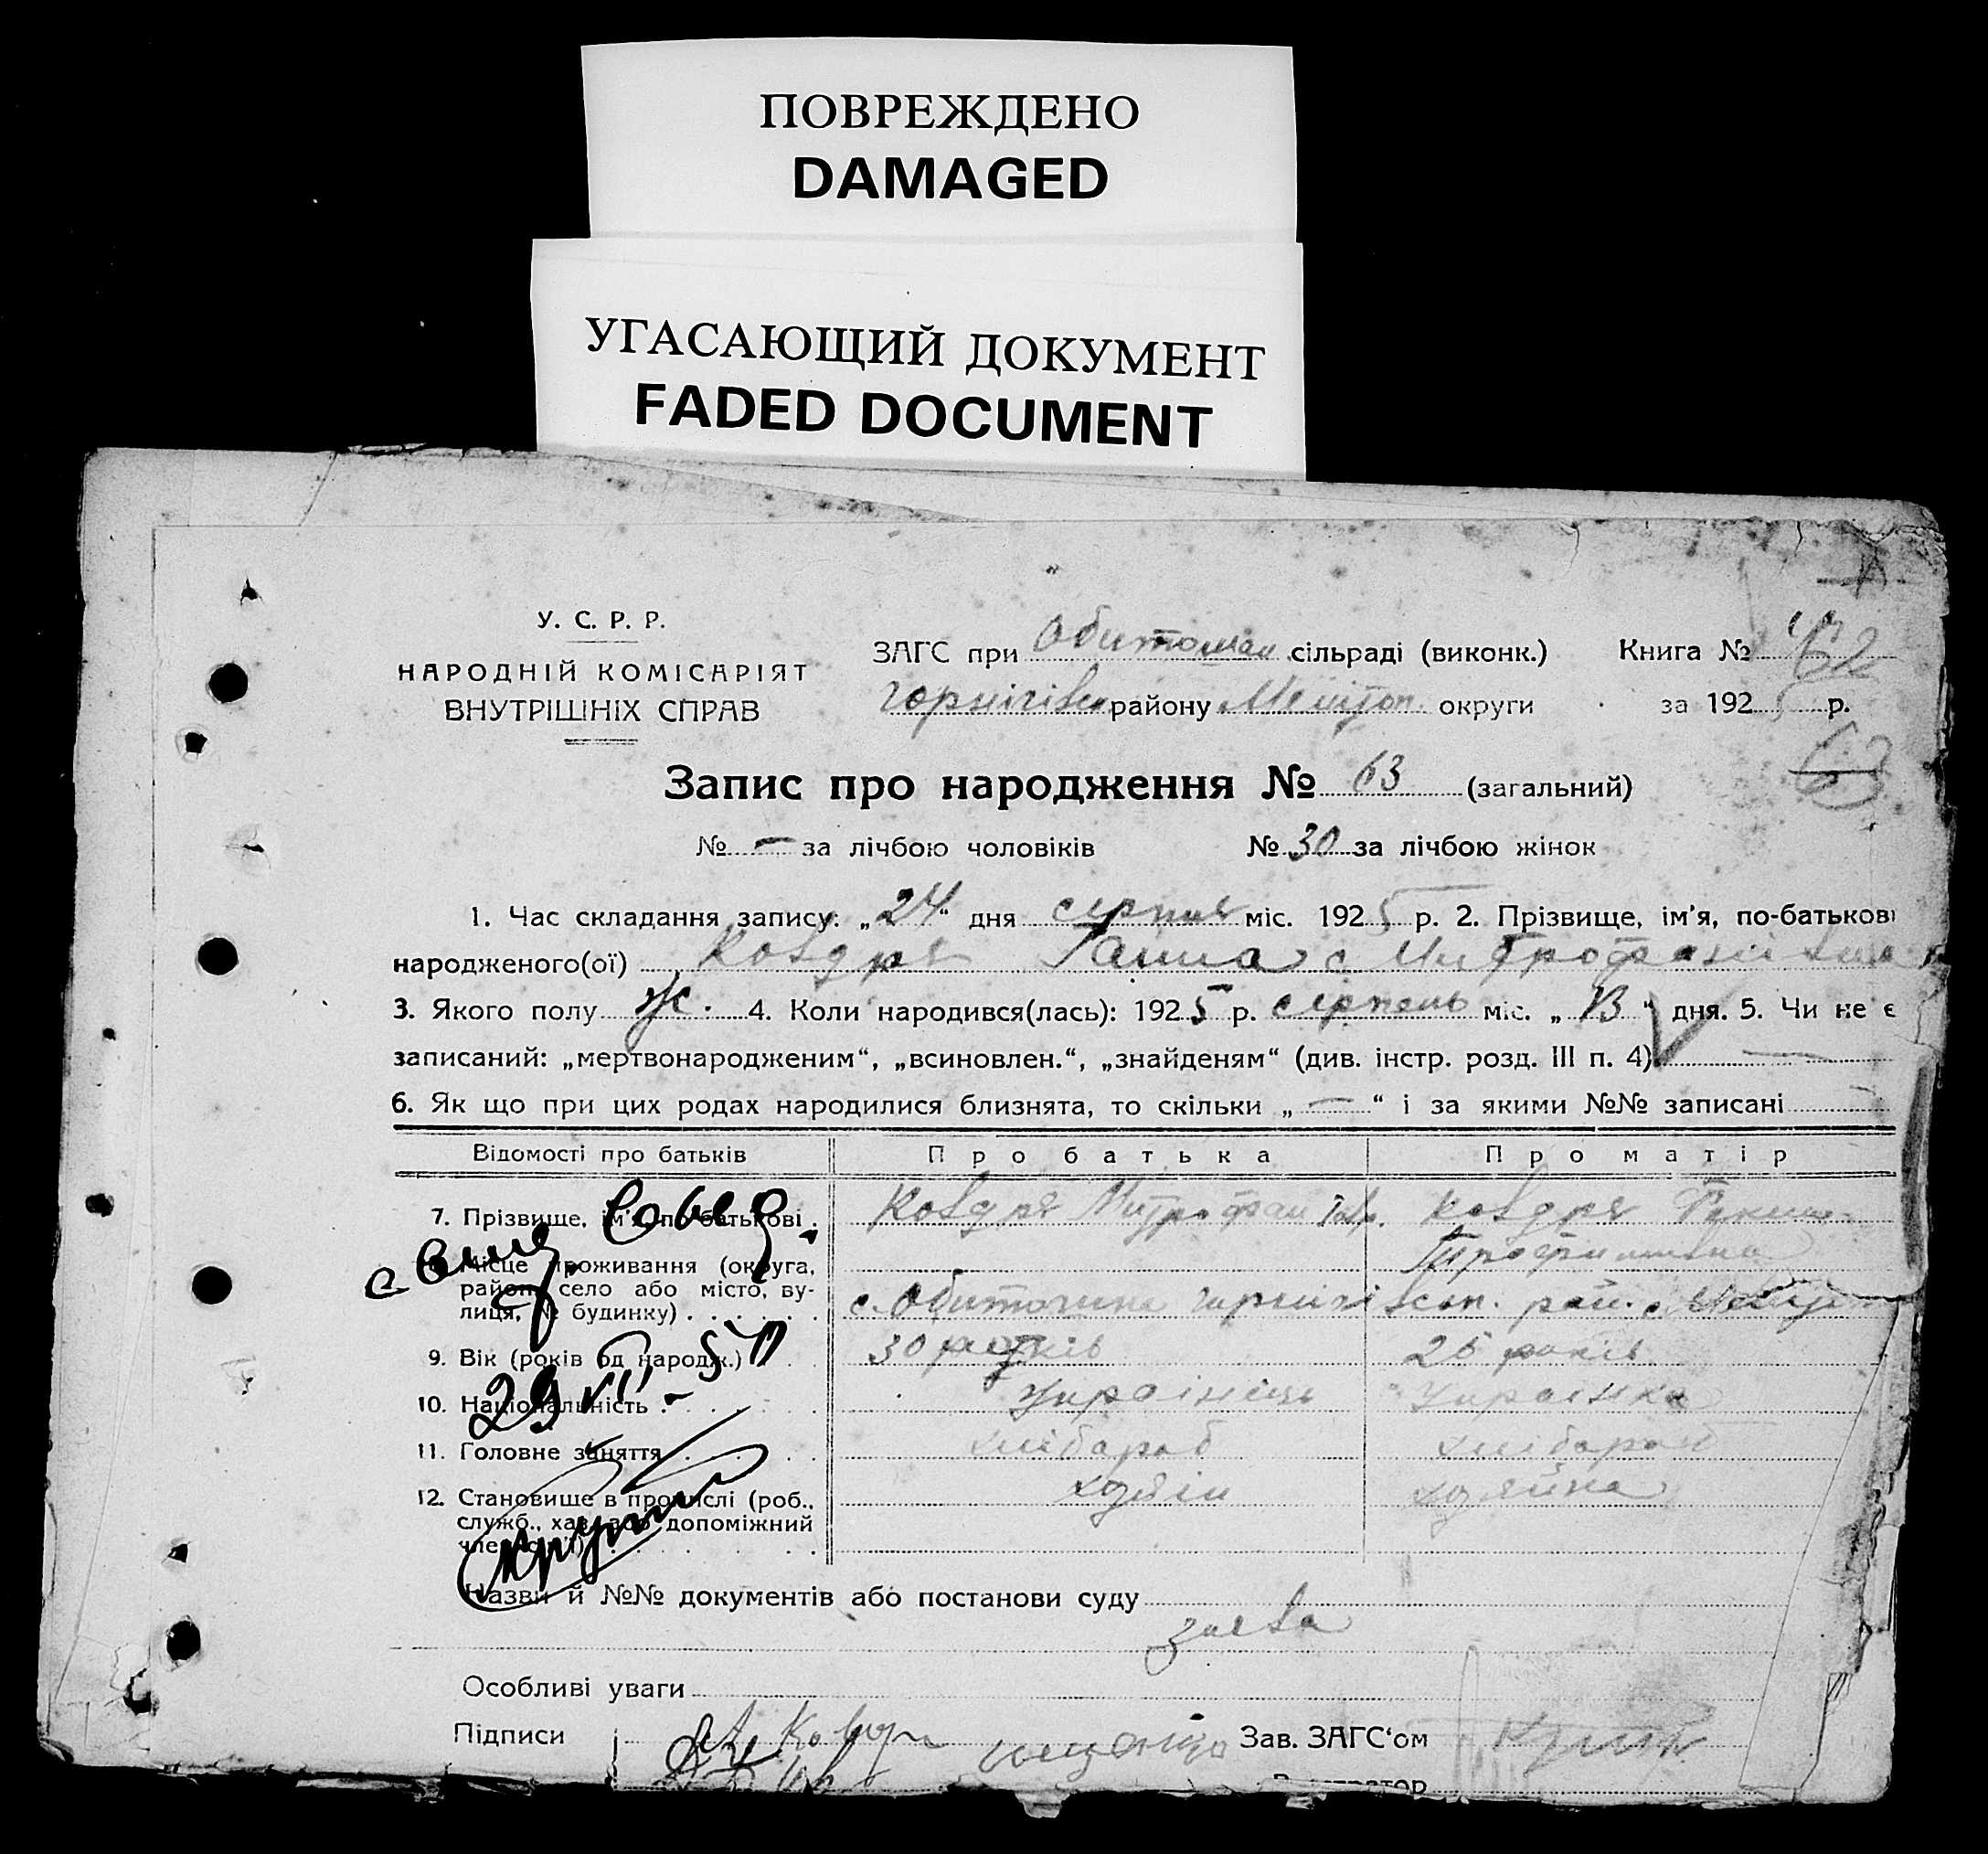 ПОВРЕЖДЕНО
DAMAGED
УГАСАЮЩИЙ ДОКУМЕНТ
FADED DOCUMENT
У. С. Р. Р.
НАРОДНІЙ КОМІСАРІЯТ
ВНУТРІШНІХ СПРАВ
ЗАГС при Обиточан сільраді (виконк.) Книга №
району округи за 1925 р.
Запис про народження № 63 (загальний)
63
№ — за лічбою чоловіків № 30 за лічбою жінок
1. Час складання запису: „24“ дня серпня міс. 1925 р. 2. Прізвище, ім’я, по-батькові
народженого(ої) Ковдря Ганна Митрофанівна
3. Якого полу ж. 4. Коли народився(лась): 1925 р. серпень міс. „13“ дня. 5. Чи не є
записаний: „мертвонародженим“, „всиновлен.“, „знайденям“ (див. інстр. розд. III п. 4) —
6. Як що при цих родах народилися близнята, то скільки „—“ і за якими №№ записані
Відомості про батьків Про батька Про матір
7. Прізвище, ім’я, по-батькові Ковдря Митрофан Ковдря
Трофимівна
Місце проживання (округа,
район, село або місто, ву-
лиця, № будинку) с. Обиточна рай.
9. Вік (років од народж.) 30 років 25 років
10. Національність Українець Українка
11. Головне заняття хлібороб хлібороб
12. Становище в промислі (роб.,
служб., хаз. або допоміжний
член сім’ї) хозяїн хозяйка
29 VII - 50
Назви й №№ документів або постанови суду
заява
Особливі уваги
Підписи Зав. ЗАГС‘ом